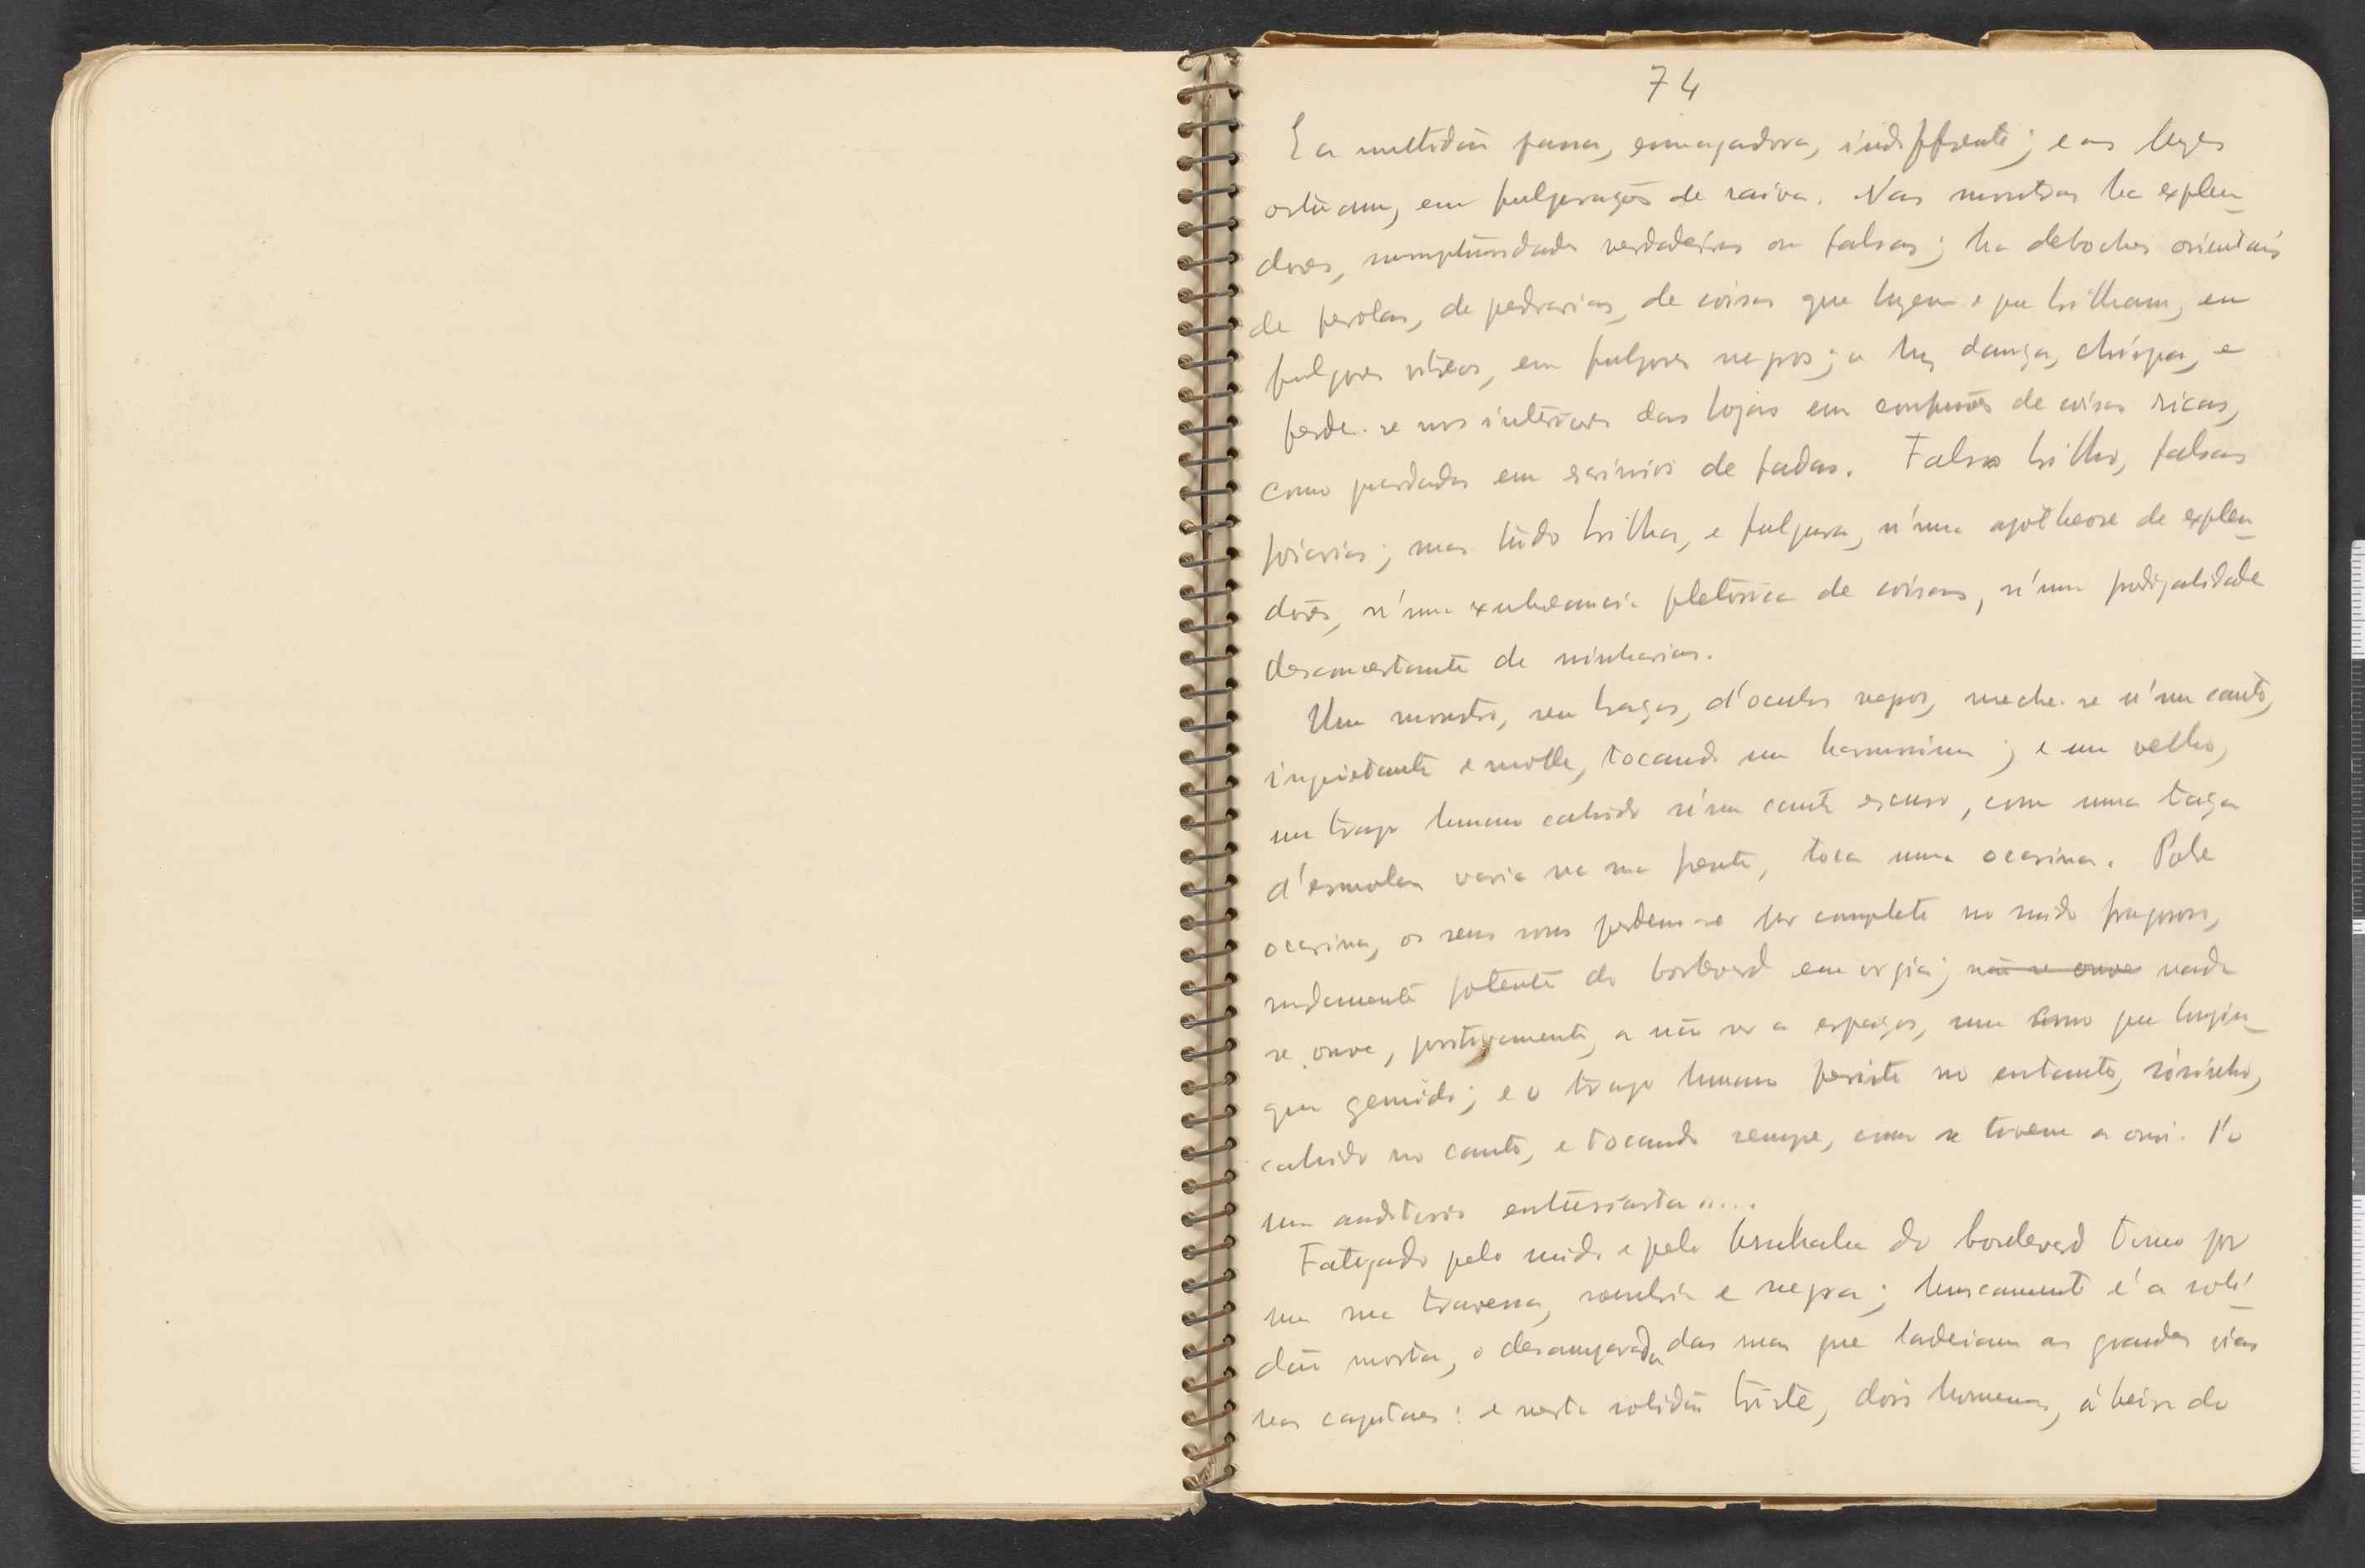 74
E a multidão passa, esmagadora, indifferente; e as luzes
ostuam, em fulgurações de raiva. Nas montras ha explen-
dores, sumptuosidades verdadeiras ou falsas; ha deboches orientais
de perolas, de pedrarias, de coisas que luzem e que brilham, em
fulgores vitreos, em fulgores negros; a luz dança, chispa, e
perde-se nos interiores das lojas em confusões de coisas ricas,
como guardadas em escrinios de fadas. Falso brilho, falsas
joiarias; mas tudo brilha, e fulgura, n'uma apotheose de explen-
dores, n'uma exuberancia pletorica de coisas, n'uma prodigalidade
desconcertante de ninharias.
Um monstro, sem braços, d'oculos negros, meche-se n'um canto,
inquietante e molle, tocando um harmonium; e um velho,
um trapo humano cahido n'um canto escuso, com uma taça
d'esmolas vasia na sua frente, toca uma ocarina. Pobre
ocarina, os seus sons perdem-se por completo no ruido fragoroso,
rudemente potente do boulevard em orgia; não se ouve nada
se ouve, positivamente, a não ser a espaços, um como que longin-
quo gemido; e o trapo humano persiste no entanto, sósinho,
cahido no canto, e tocando sempre, como se tivesse a ouvi-l'o
um auditorio entusiasta.....
Fatigado pelo ruido e pelo bruhaha do boulevard tomo por
uma rua travessa, sombria e negra; bruscamente é a soli-
dão morta, e desamparada das ruas que ladeiam as grandes vias
nas capitaes: e nesta solidão triste, dois homens, á beira do